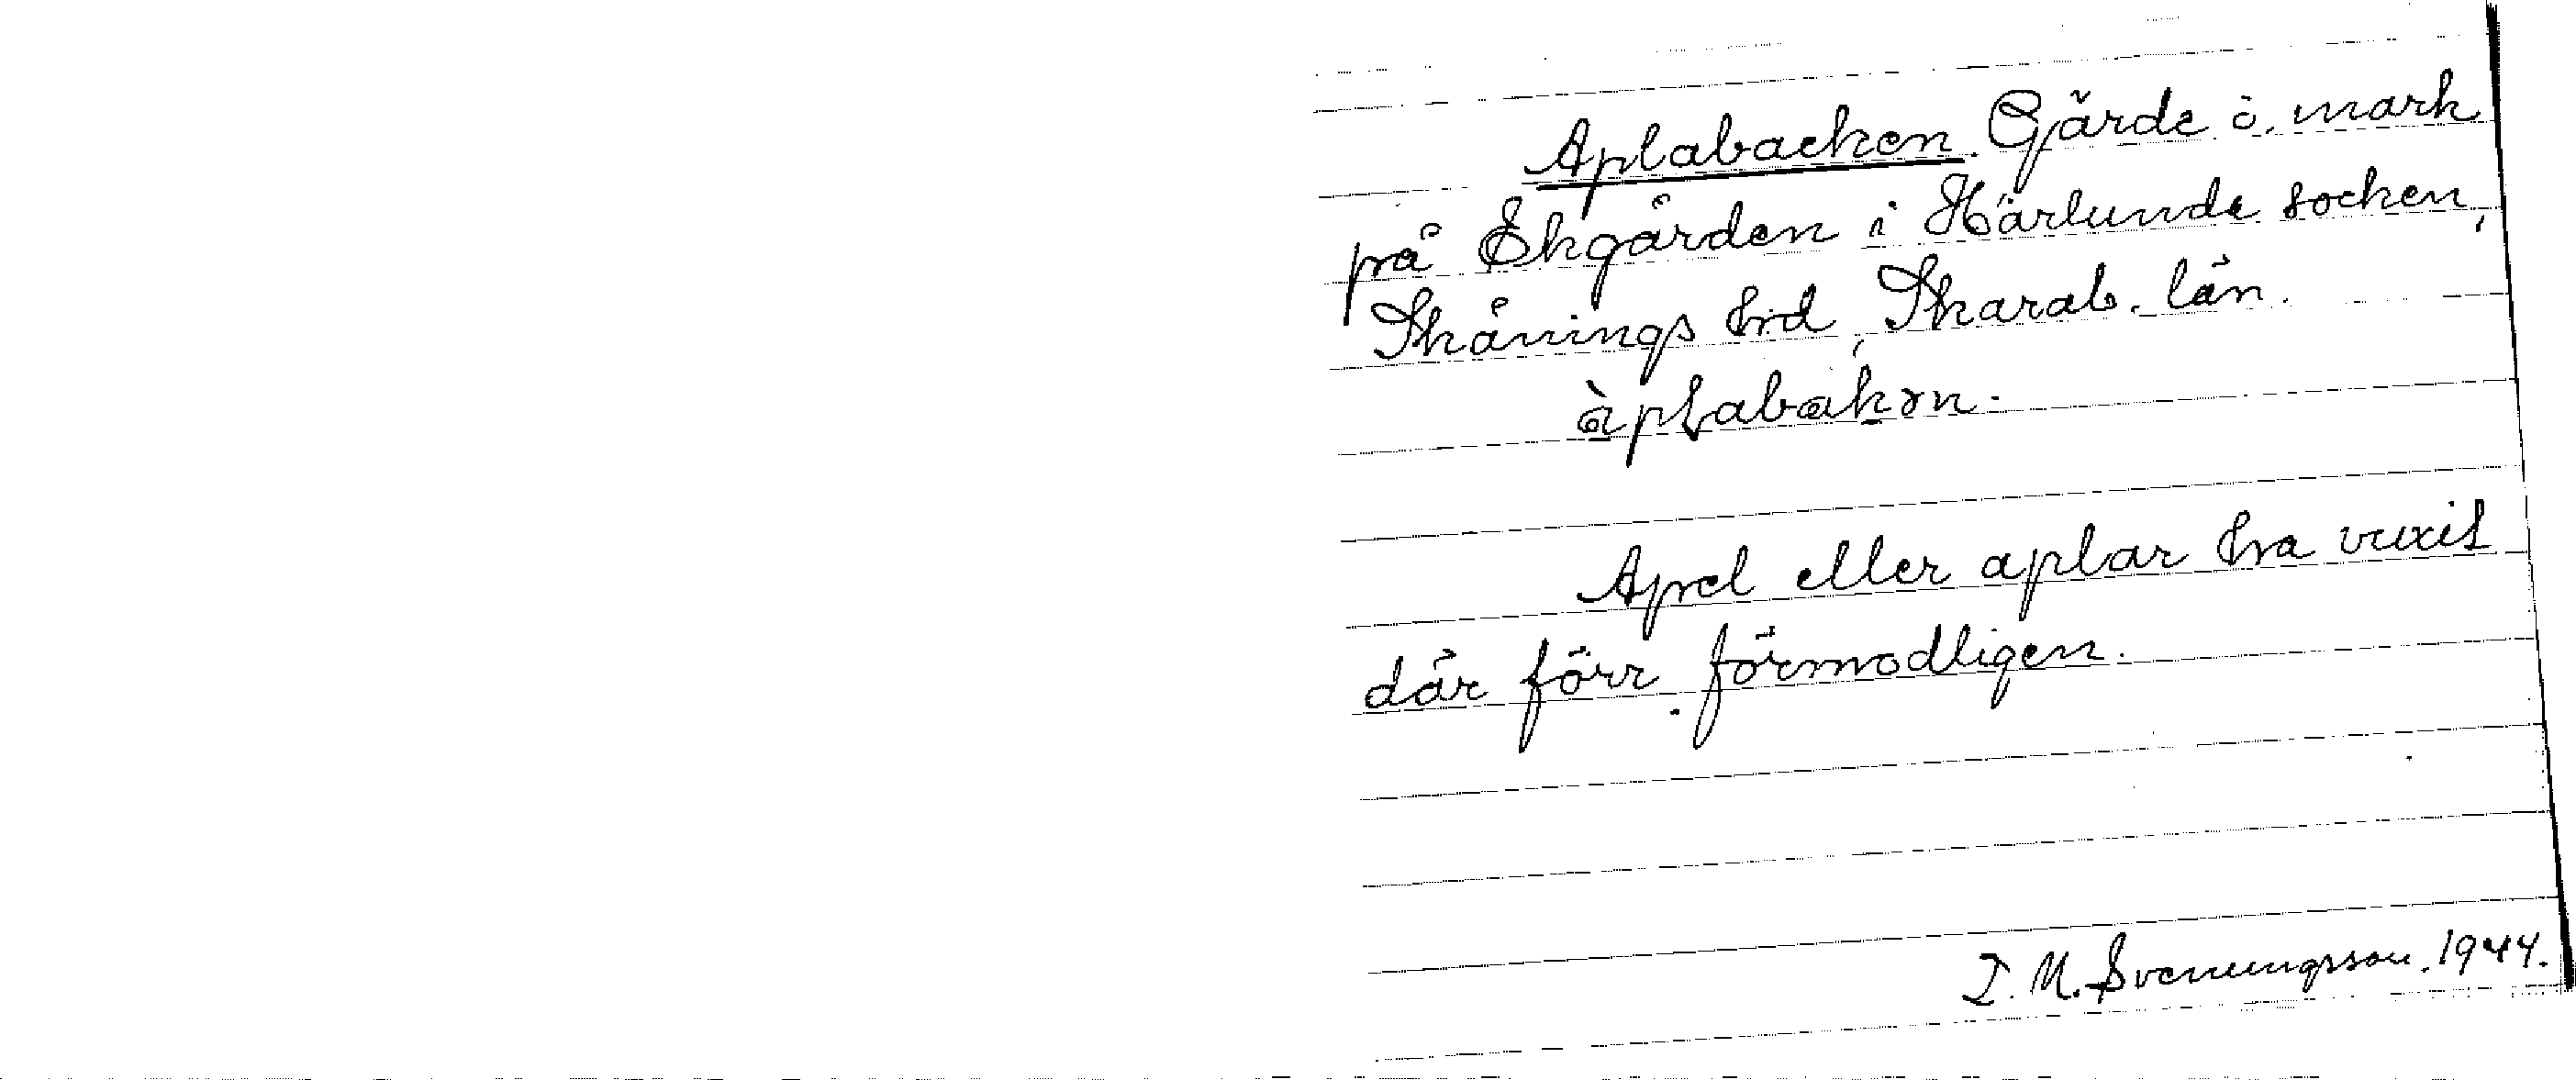 Aplabacken. Gärde o. mark
på Ekgården i Härlunda socken,
Skånings hd, Skarab. län.
àplabakən.
Apel eller aplar ha vuxit
där förr förmodligen.
I. M. Svenungsson. 1944.